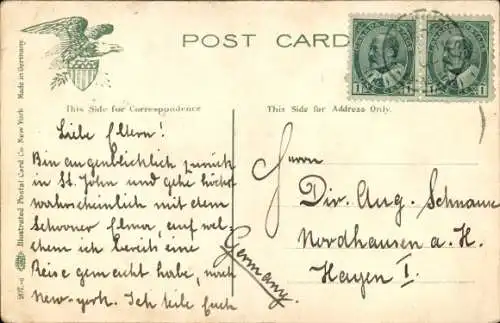 POST CARD
This Side for Correspondence
This Side for Address Only.
CANADA POSTAGE
1 1
CANADA POSTAGE
1 1
Made in Germany
Illustrated Postal Card Co. New York
Liebe Eltern!
Bin augenblicklich zurück
in St. John und gehe höchst
wahrscheinlich mit dem
Schooner Elma, auf wel-
chem ich bereits eine
Reise gemacht habe, nach
New-york. Ich teile Euch
Herrn
Dir. Aug. Schnause
Nordhausen a. H.
Hagen I.
Germany.